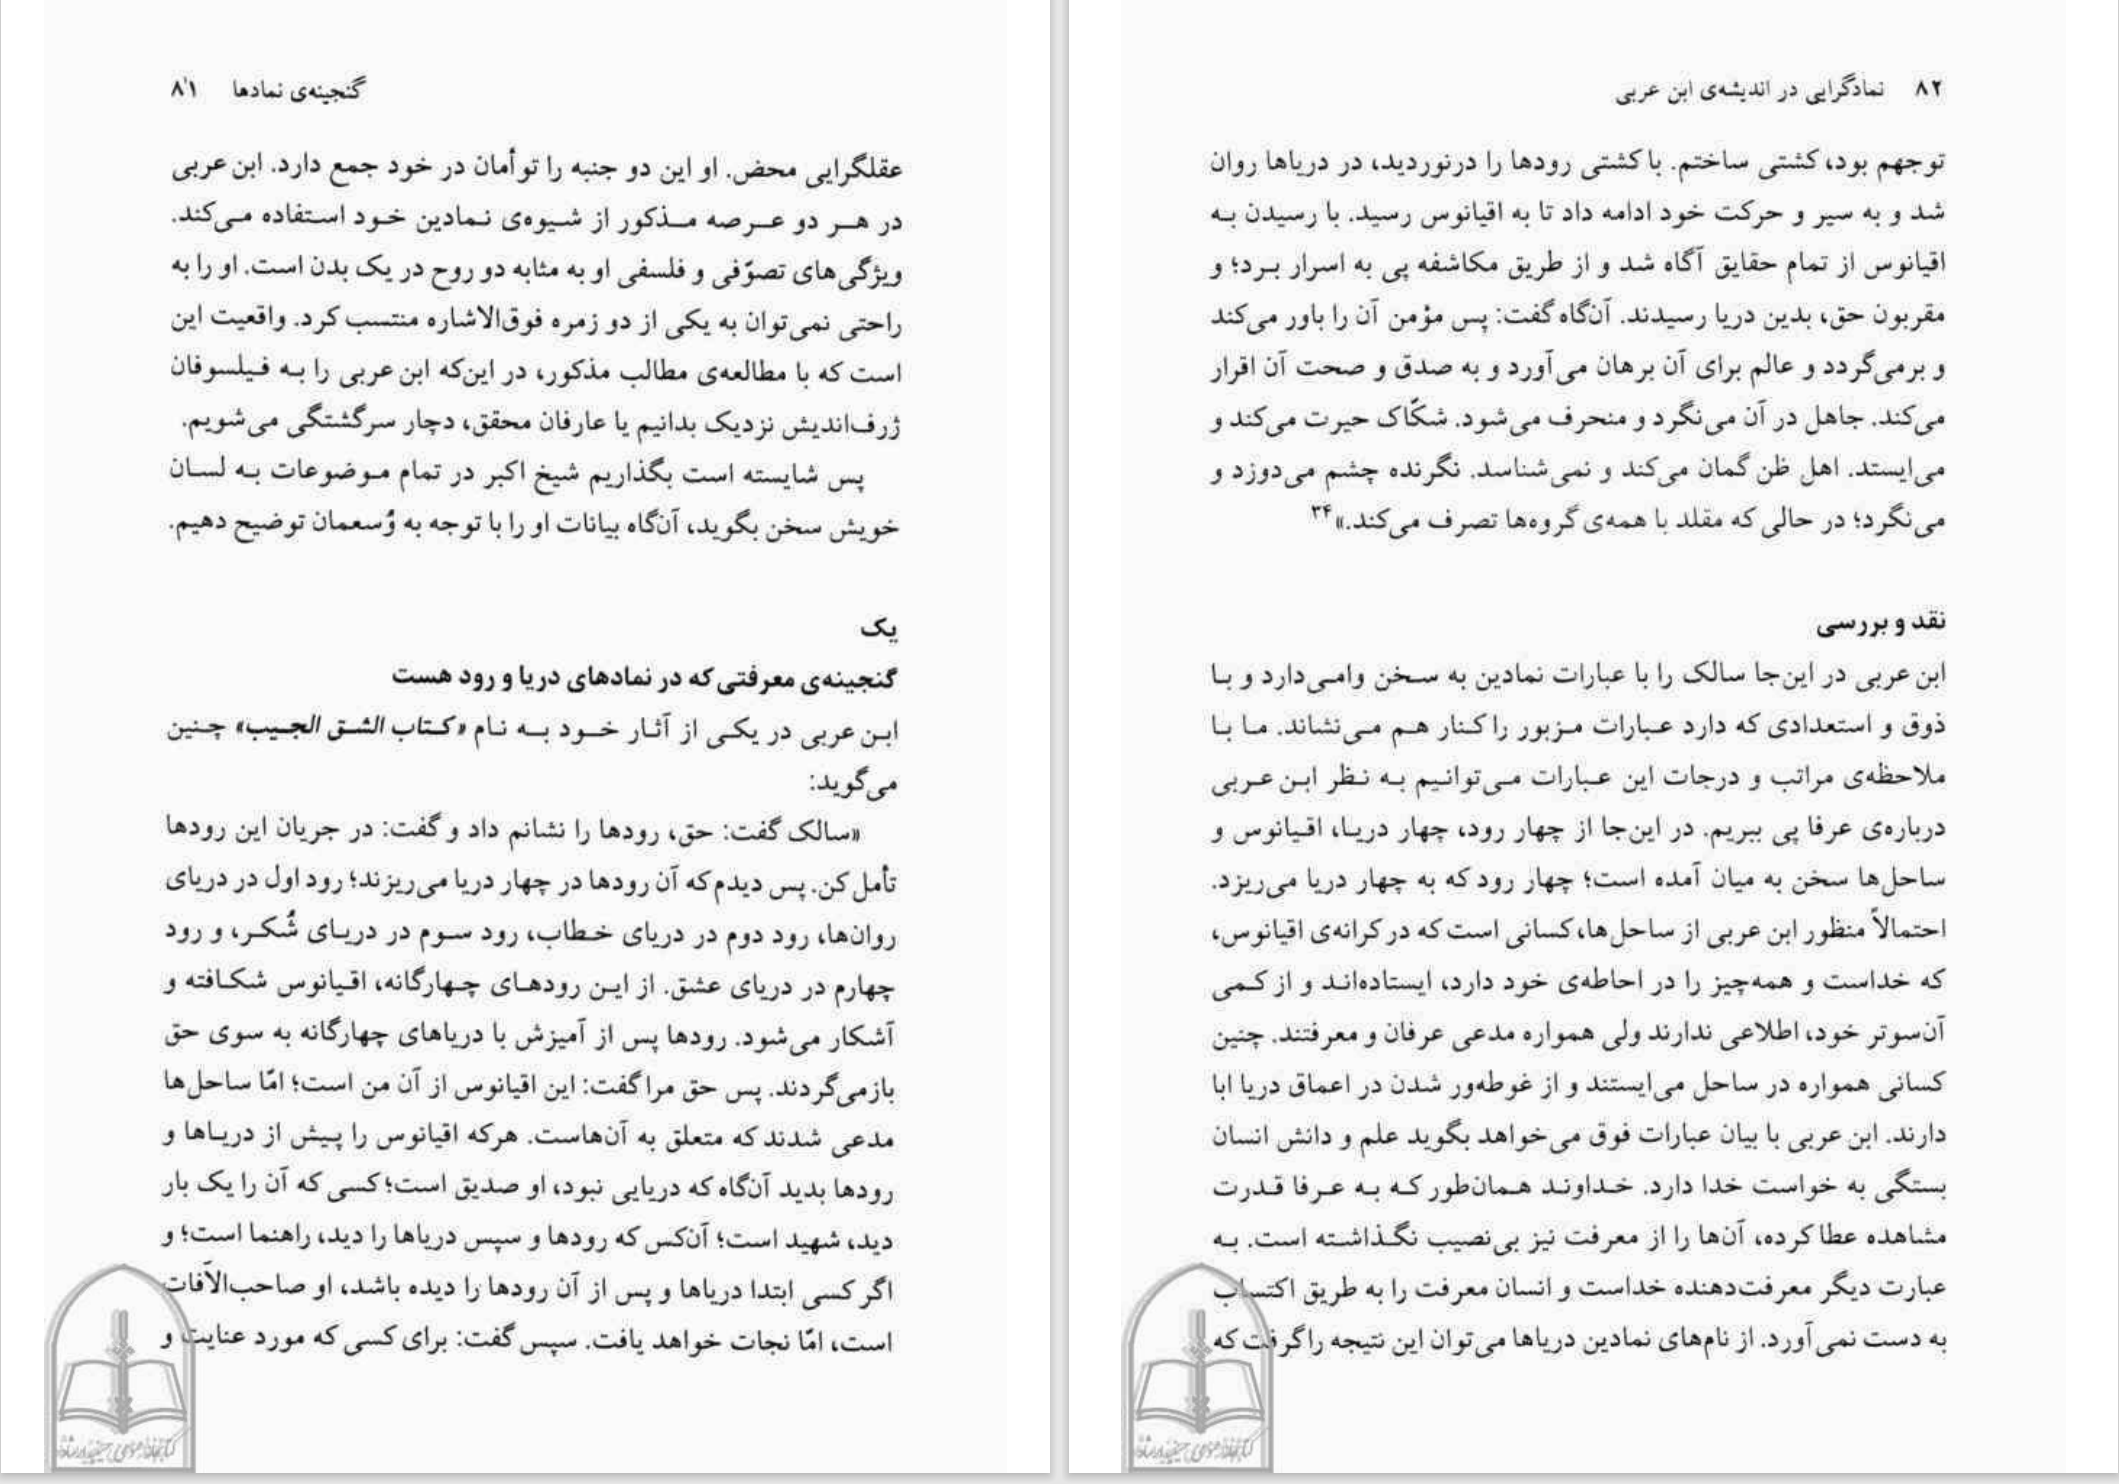 گنجینه‌ی نمادها ۸۱
عقلگرایی محض. او این دو جنبه را توأمان در خود جمع دارد. ابن عربی
در هر دو عرصه مذکور از شیوه‌ی نمادین خود استفاده می‌کند.
ویژگی‌های تصوّفی و فلسفی او به مثابه دو روح در یک بدن است. او را به
راحتی نمی‌توان به یکی از دو زمره فوق‌الاشاره منتسب کرد. واقعیت این
است که با مطالعه‌ی مطالب مذکور، در این‌که ابن عربی را به فیلسوفان
ژرف‌اندیش نزدیک بدانیم یا عارفان محقق، دچار سرگشتگی می‌شویم.
پس شایسته است بگذاریم شیخ اکبر در تمام موضوعات به لسان
خویش سخن بگوید، آن‌گاه بیانات او را با توجه به وُسعمان توضیح دهیم.
یک
گنجینه‌ی معرفتی که در نمادهای دریا و رود هست
ابن عربی در یکی از آثار خود به نام «کتاب الشق الجیب» چنین
می‌گوید:
«سالک گفت: حق، رودها را نشانم داد و گفت: در جریان این رودها
تأمل کن. پس دیدم که آن رودها در چهار دریا می‌ریزند؛ رود اول در دریای
روان‌ها، رود دوم در دریای خطاب، رود سوم در دریای شُکر، و رود
چهارم در دریای عشق. از این رودهای چهارگانه، اقیانوس شکافته و
آشکار می‌شود. رودها پس از آمیزش با دریاهای چهارگانه به سوی حق
بازمی‌گردند. پس حق مرا گفت: این اقیانوس از آن من است؛ امّا ساحل‌ها
مدعی شدند که متعلق به آن‌هاست. هرکه اقیانوس را پیش از دریاها و
رودها بدید آن‌گاه که دریایی نبود، او صدیق است؛ کسی که آن را یک بار
دید، شهید است؛ آن‌کس که رودها و سپس دریاها را دید، راهنما است؛ و
اگر کسی ابتدا دریاها و پس از آن رودها را دیده باشد، او صاحب‌الآفات
است، امّا نجات خواهد یافت. سپس گفت: برای کسی که مورد عنایت و
۸۲ نمادگرایی در اندیشه‌ی ابن عربی
توجهم بود، کشتی ساختم. با کشتی رودها را درنوردید، در دریاها روان
شد و به سیر و حرکت خود ادامه داد تا به اقیانوس رسید. با رسیدن به
اقیانوس از تمام حقایق آگاه شد و از طریق مکاشفه پی به اسرار برد؛ و
مقربون حق، بدین دریا رسیدند. آن‌گاه گفت: پس مؤمن آن را باور می‌کند
و برمی‌گردد و عالم برای آن برهان می‌آورد و به صدق و صحت آن اقرار
می‌کند. جاهل در آن می‌نگرد و منحرف می‌شود. شکّاک حیرت می‌کند و
می‌ایستد. اهل ظن گمان می‌کند و نمی‌شناسد. نگرنده چشم می‌دوزد و
می‌نگرد؛ در حالی که مقلد با همه‌ی گروه‌ها تصرف می‌کند.»۳۴
نقد و بررسی
ابن عربی در این‌جا سالک را با عبارات نمادین به سخن وامی‌دارد و با
ذوق و استعدادی که دارد عبارات مزبور را کنار هم می‌نشاند. ما با
ملاحظه‌ی مراتب و درجات این عبارات می‌توانیم به نظر ابن عربی
درباره‌ی عرفا پی ببریم. در این‌جا از چهار رود، چهار دریا، اقیانوس و
ساحل‌ها سخن به میان آمده است؛ چهار رود که به چهار دریا می‌ریزد.
احتمالاً منظور ابن عربی از ساحل‌ها، کسانی است که در کرانه‌ی اقیانوس،
که خداست و همه‌چیز را در احاطه‌ی خود دارد، ایستاده‌اند و از کمی
آن‌سوتر خود، اطلاعی ندارند ولی همواره مدعی عرفان و معرفتند. چنین
کسانی همواره در ساحل می‌ایستند و از غوطه‌ور شدن در اعماق دریا ابا
دارند. ابن عربی با بیان عبارات فوق می‌خواهد بگوید علم و دانش انسان
بستگی به خواست خدا دارد. خداوند همان‌طور که به عرفا قدرت
مشاهده عطا کرده، آن‌ها را از معرفت نیز بی‌نصیب نگذاشته است. به
عبارت دیگر معرفت‌دهنده خداست و انسان معرفت را به طریق اکتساب
به دست نمی‌آورد. از نام‌های نمادین دریاها می‌توان این نتیجه را گرفت که